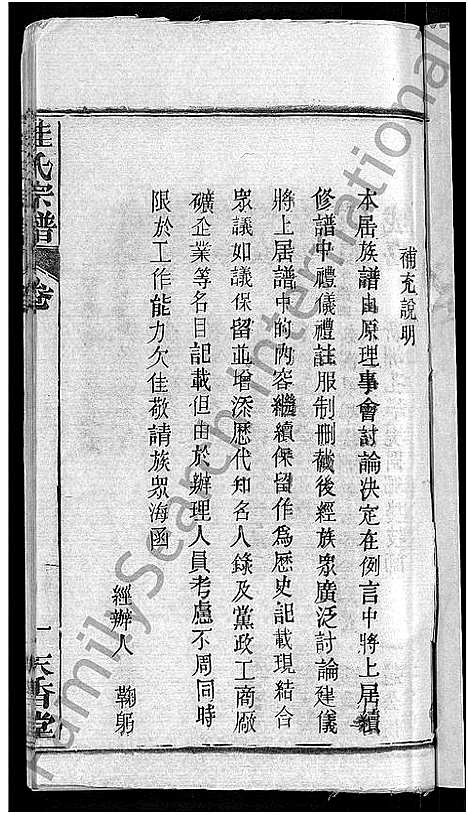 補充說明
本居族譜由原理事會討論決定在例言中將上居續
修譜中禮儀禮註服制刪截後經族眾廣泛討論建儀
將上居譜中的內容繼續保留作為歷史記載現結合
眾議如議保留並增添歷代知名人錄及黨政工商廠
礦企業等名目記載但由於辦理人員考慮不周同時
限於工作能力欠佳敬請族眾海函
經辦人 鞠躬
桂氏宗譜 卷 一 天香堂
FamilySearch International